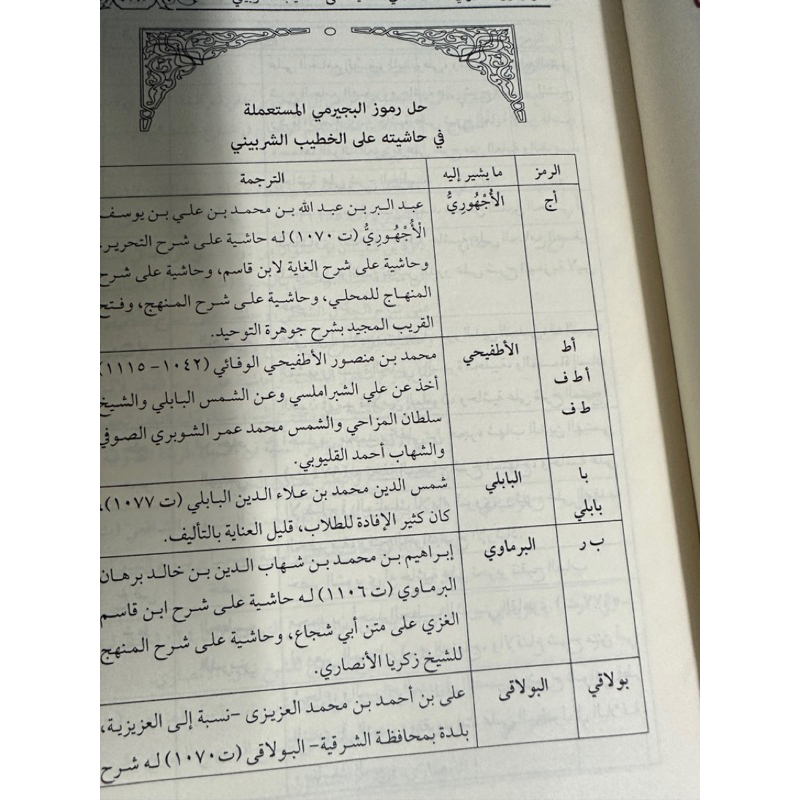 حل رموز البجيرمي المستعملة
في حاشيته على الخطيب الشربيني
الرمز ما يشير إليه الترجمة
أج الأُجْهُورِيُّ عبد البر بن عبد الله بن محمد بن علي بن يوسف
الْأُجْهُورِيُّ (ت ١٠٧٠) له حاشية على شرح التحرير.
وحاشية على شرح الغاية لابن قاسم، وحاشية على شرح
المنهاج للمحلي، وحاشية على شرح المنهج، وفتح
القريب المجيد بشرح جوهرة التوحيد.
أط الأطفيحي محمد بن منصور الأطفيحي الوفائي (١٠٤٢- ١١١٥)
أط ف أخذ عن علي الشبراملسي وعن الشمس البابلي والشيخ
ط ف سلطان المزاحي والشمس محمد عمر الشوبري الصوفي
والشهاب أحمد القليوبي.
با البابلي شمس الدين محمد بن علاء الدين البابلي (ت ١٠٧٧)،
بابلي كان كثير الإفادة للطلاب، قليل العناية بالتأليف.
ب ر البرماوي إبراهيم بن محمد بن شهاب الدين بن خالد برهان
البرماوي (ت ١١٠٦) له حاشية على شرح ابن قاسم
الغزي على متن أبي شجاع، وحاشية على شرح المنهج
للشيخ زكريا الأنصاري.
بولاقي البولاقى على بن أحمد بن محمد العزيزى -نسبة إلى العزيزية،
بلدة بمحافظة الشرقية- البولاقى (ت ١٠٧٠) له شرح